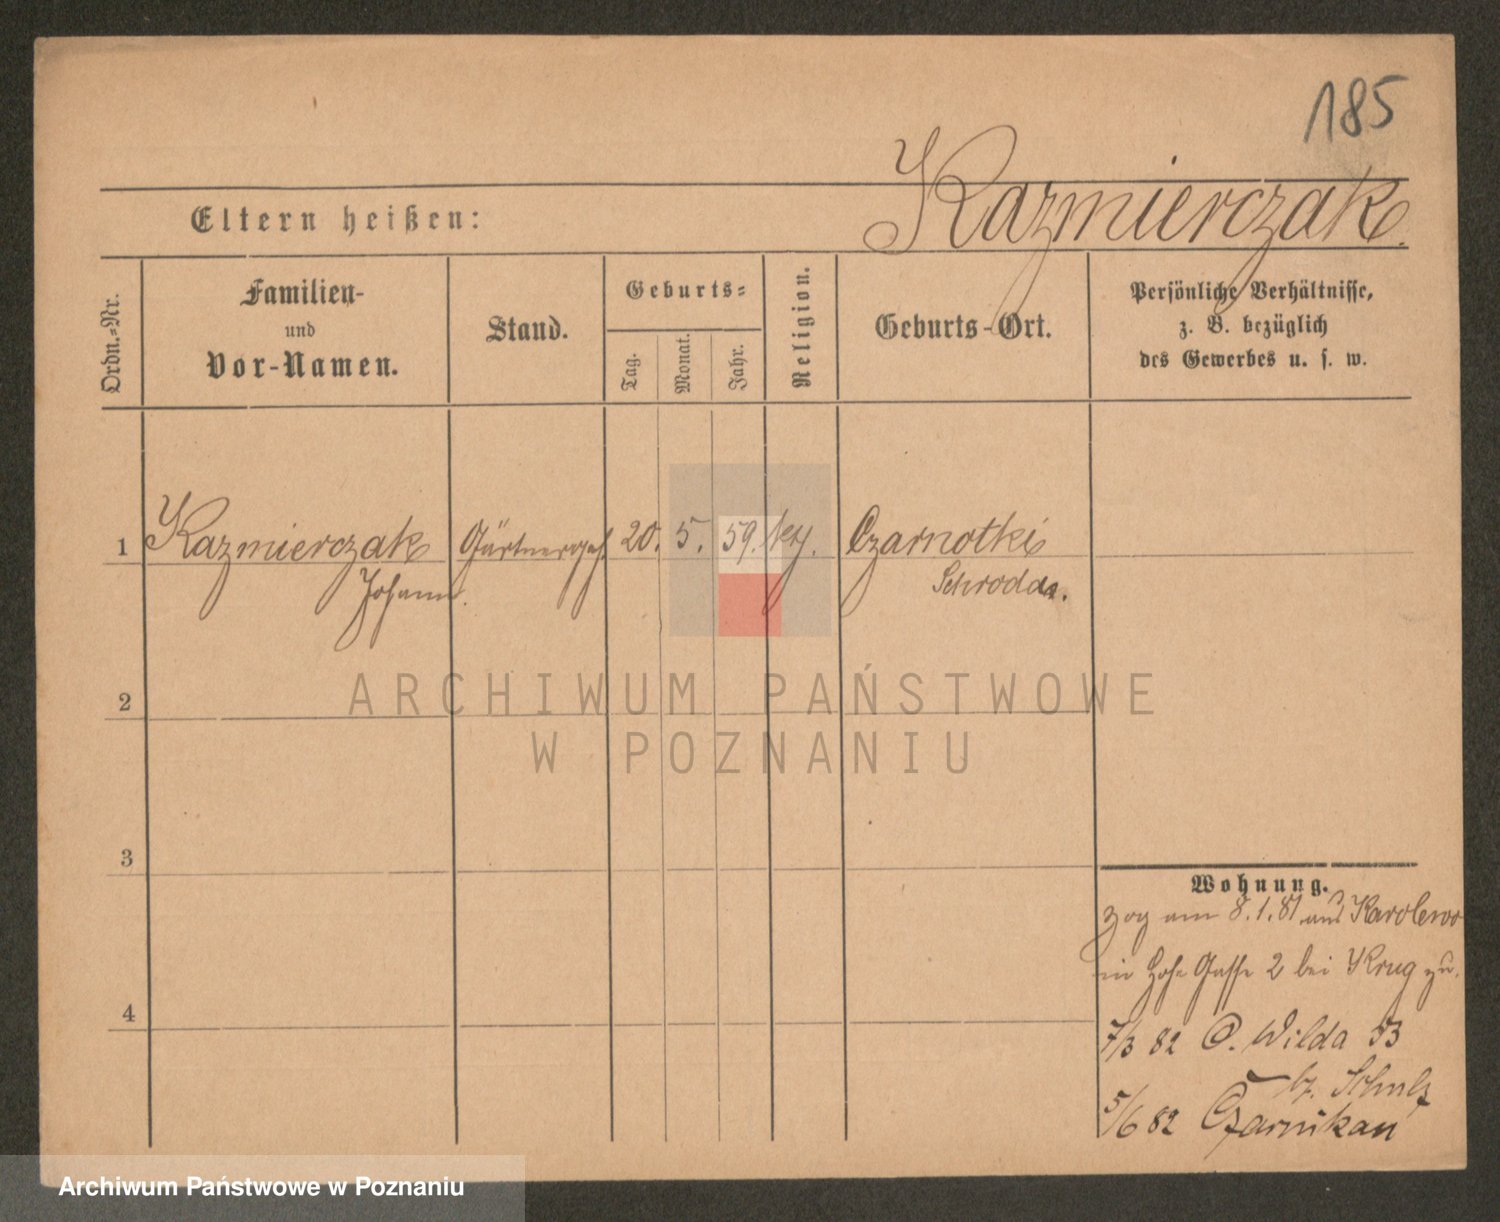 185
Kazmierczak.
Eltern heißen:
Ordn.-Nr.
Familien-
und
Vor-Namen.
Stand.
Geburts-
Tag.
Monat.
Jahr.
Religion.
Geburts-Ort.
Persönliche Verhältnisse,
z. B. bezüglich
des Gewerbes u. s. w.
1 Kazmierczak Gärtnergeh. 20. 5. 59. Czarnotki
Johann. Schrodda.
2
3
4
ARCHIWUM PAŃSTWOWE
W POZNANIU
Wohnung.
zog am 8.1.81 aus Karolewo
in Hohe Gasse 2 bei Krug zu.
7/3 82 O. Wilda 53
bz. Schulz
5/6 82 Czarnikau
Archiwum Państwowe w Poznaniu